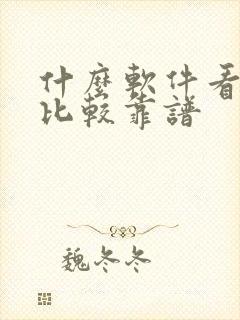 什麼軟件看
比較靠譜
魏冬冬